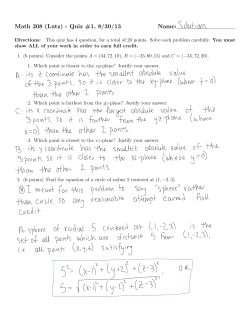 Math 208 (Lutz) - Quiz #1, 8/30/13 Name: Solution
Directions: This quiz has 4 question, for a total of 20 points. Solve each problem carefully. You must
show ALL of your work in order to earn full credit.
1. (6 points) Consider the points
1. Which point is closest to the xy-plane? Justify your answer.
A: its z coordinate has the smallest absolute value
of the 3 points. So it is closer to the xy-plane (where z=0)
than the other 2 points
2. Which point is farthest from the yz-plane? Justify your answer.
C: its x coordinate has the largest absolute value of the
3 points, so it is farther from the yz-plane (where
x=0) than the other 2 points.
3. Which point is closest to the xz-plane? Justify your answer.
B: its y coordinate has the smallest absolute value of the
3 points, so it is closer to the xz-plane (where y=0)
than the other 2 points.
2. (6 points) Find the equation of a circle of radius 5 centered at (1, −2, 3).
I meant for this problem to say "sphere" rather
than circle. So any reasonable attempt earned full
credit
A sphere of radius 5 centered at (1,-2,3) is the
set of all points which are distance 5 from (1,-2,3),
i.e. all points (x,y,z) satisfying
5² = (x-1)² + (y+2)² + (z-3)², OR